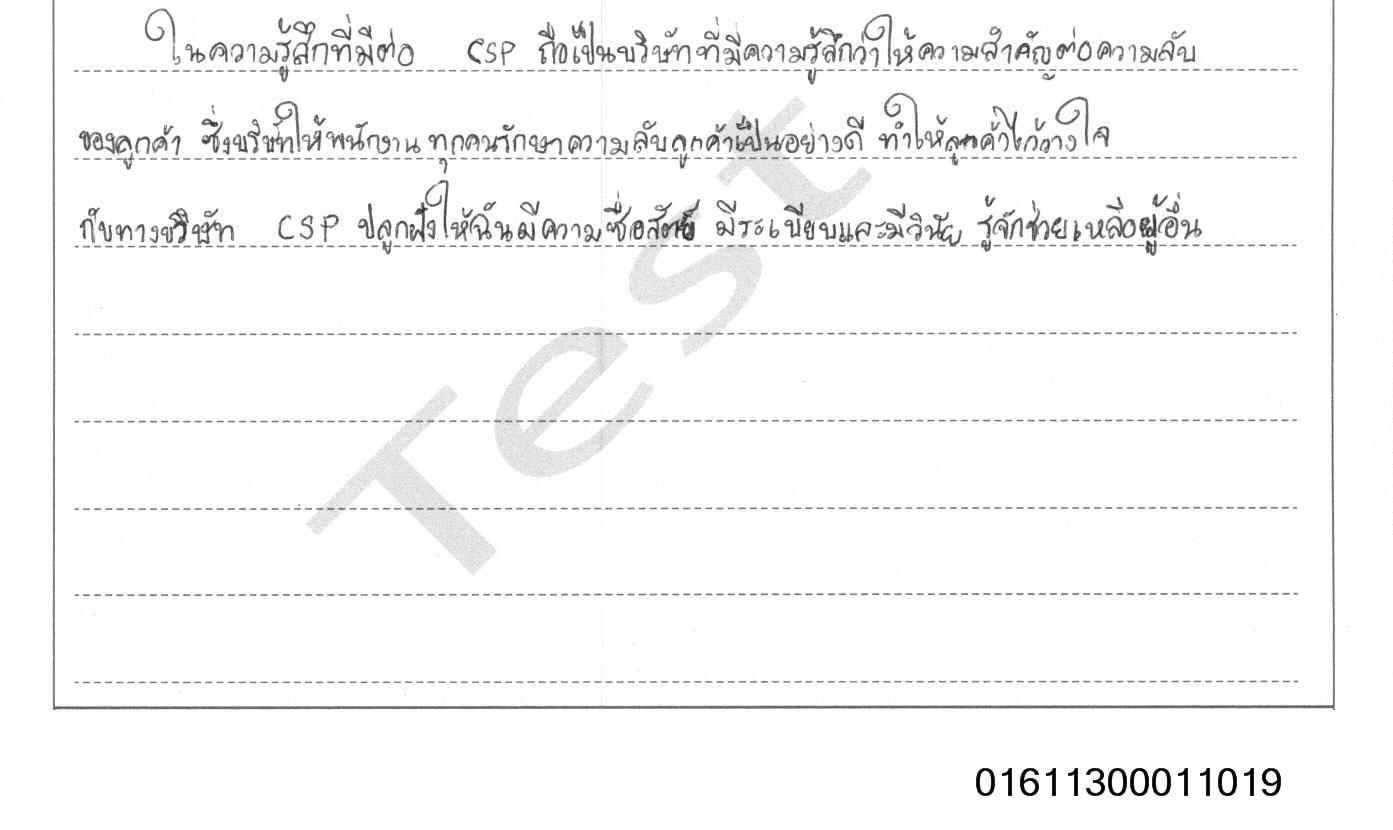 ในความรู้สึกที่มีต่อ CSP ถือเป็นบริษัทที่มีความรู้สึกว่าให้ความสำคัญต่อความลับ
ของลูกค้า ซึ่งบริษัทให้พนักงานทุกคนรักษาความลับลูกค้าเป็นอย่างดี ทำให้ลูกค้าไว้วางใจ
กับทางบริษัท CSP ปลูกฝังให้ฉันมีความซื่อสัตย์ มีระเบียบและมีวินัย รู้จักช่วยเหลือผู้อื่น
Test
01611300011019